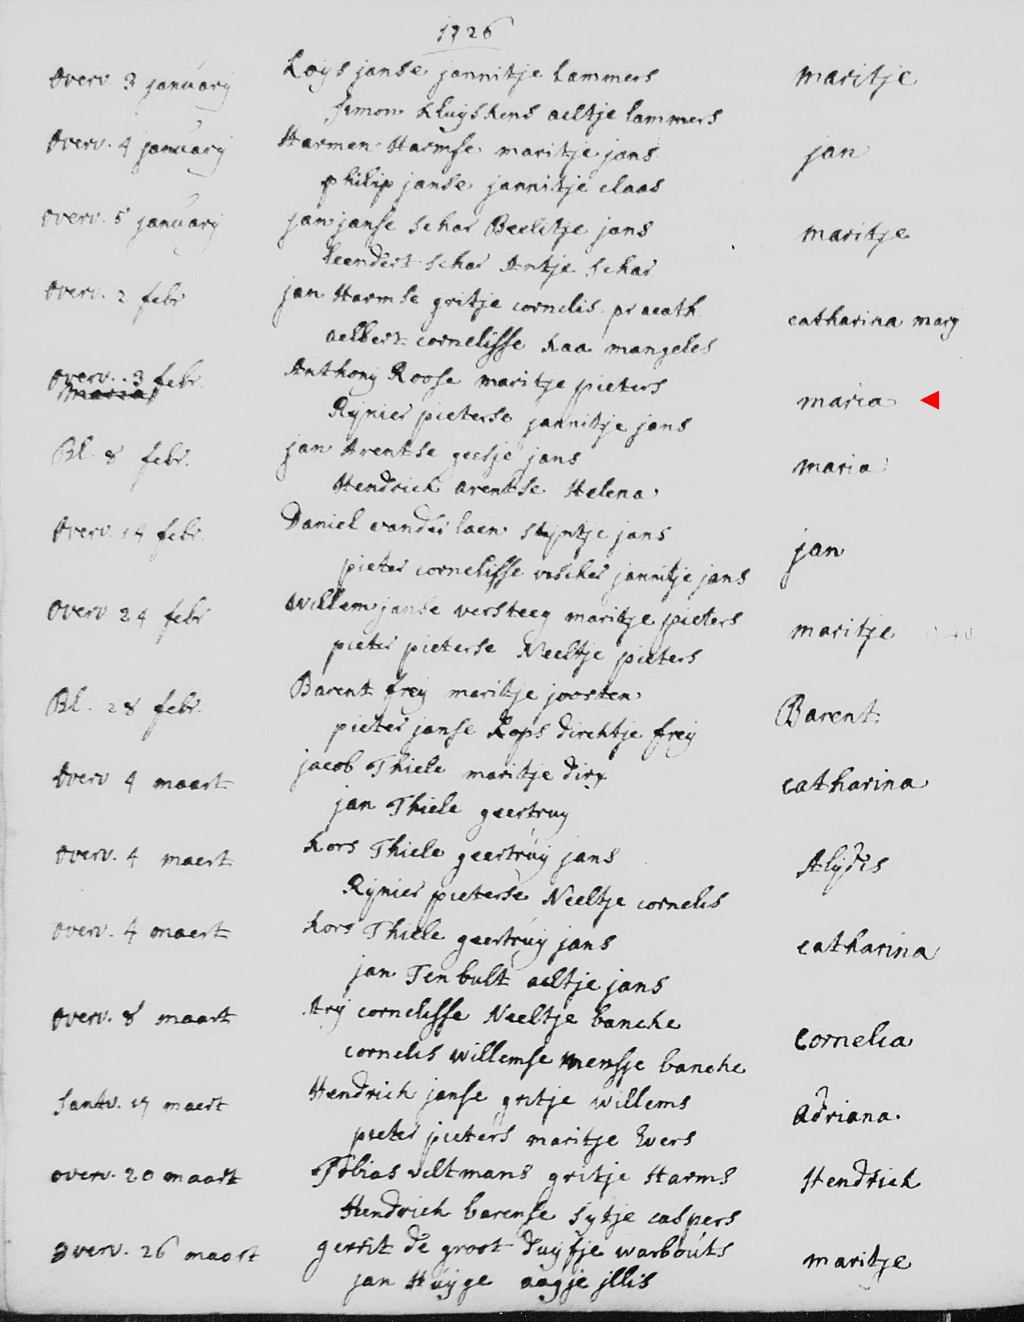 1726
Overv 3 januarij Loijs janse jannitje Lammers maritje
simon Kluijskens aeltje lammers
Overv. 4 januarij Harmen Harmse maritje jans jan
philip janse jannitje claas
overv. 5 januarij jan janse schar Beelitje jans maritje
leendert schar Antje schar
Overv. 2 febr jan Harmse gritje cornelis praeath catharina marg
aelbert cornelisse kaa mangeles
Overv. 3 febr. Anthonij Roose maritje pieters maria
maria Rynier pieterse jannitje jans
Bl. 8 febr. jan Arentse geesje jans maria
Hendrick arentse Helena
Overv. 14 febr. Daniel vander laen stijntje jans jan
pieter cornelisse visscher jannitje jans
Overv 24 febr Willem janse versteeg maritje pieters maritje
pieter pieterse Neeltje pieters
Bl. 28 febr. Barent freij maritje joosten Barent
pieter janse Rops dirchtje freij
Overv 4 maart jacob Thiele maritje dirx catharina
jan Thiele geertruij
Overv. 4 maert Kors Thiele geertruij jans Alijdis
Rijnier pieterse Neeltje cornelis
Overv. 4 maert Kors Thiele geertruij jans catharina
jan Tenbult aeltje jans
Overv. 8 maart Arij cornelisse Neeltje banche Cornelia
cornelis willemse mensje banche
Santv. 17 maert Hendrick janse gritje willems Adriana.
pieter pieters maritje Evers
overv. 20 maart Tobias veltmans gritje Harms Hendrick
Hendrick barense sytje caspers
overv. 26 maart gerrit de groot duijfje warbouts maritje
jan Huijge aagje jllis